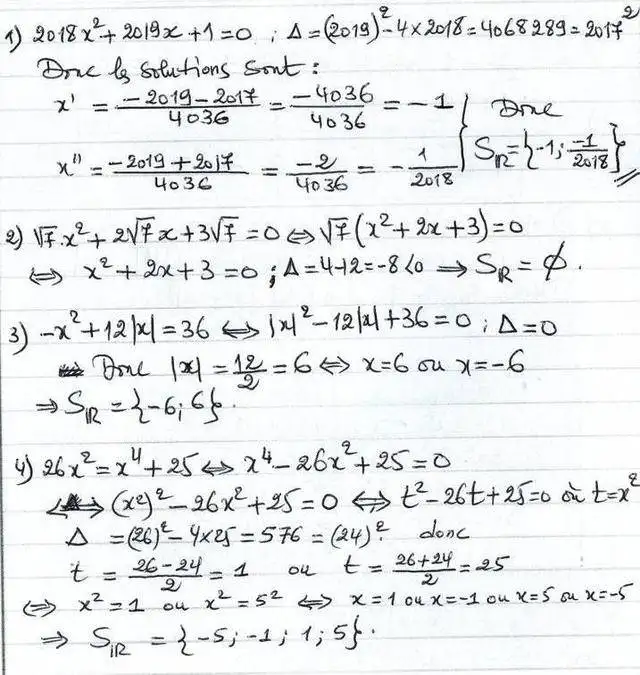 1) 2018x² + 2019x + 1 = 0 ; Δ = (2019)² - 4×2018 = 4068289 = 2017²
Donc les solutions sont :
x' = (-2019 - 2017)/4036 = -4036/4036 = -1 } Donc
x'' = (-2019 + 2017)/4036 = -2/4036 = -1/2018 } S_ℝ = {-1 ; -1/2018}
2) √7.x² + 2√7x + 3√7 = 0 ⇔ √7(x² + 2x + 3) = 0
⇔ x² + 2x + 3 = 0 ; Δ = 4-12 = -8 < 0 ⇒ S_ℝ = ∅.
3) -x² + 12|x| = 36 ⇔ |x|² - 12|x| + 36 = 0 ; Δ = 0
Donc |x| = 12/2 = 6 ⇔ x = 6 ou x = -6
⇒ S_ℝ = {-6 ; 6}.
4) 26x² = x⁴ + 25 ⇔ x⁴ - 26x² + 25 = 0
⇔ (x²)² - 26x² + 25 = 0 ⇔ t² - 26t + 25 = 0 où t = x²
Δ = (26)² - 4×25 = 576 = (24)². donc
t = (26-24)/2 = 1 ou t = (26+24)/2 = 25
⇔ x² = 1 ou x² = 5² ⇔ x = 1 ou x = -1 ou x = 5 ou x = -5
⇒ S_ℝ = {-5 ; -1 ; 1 ; 5}.